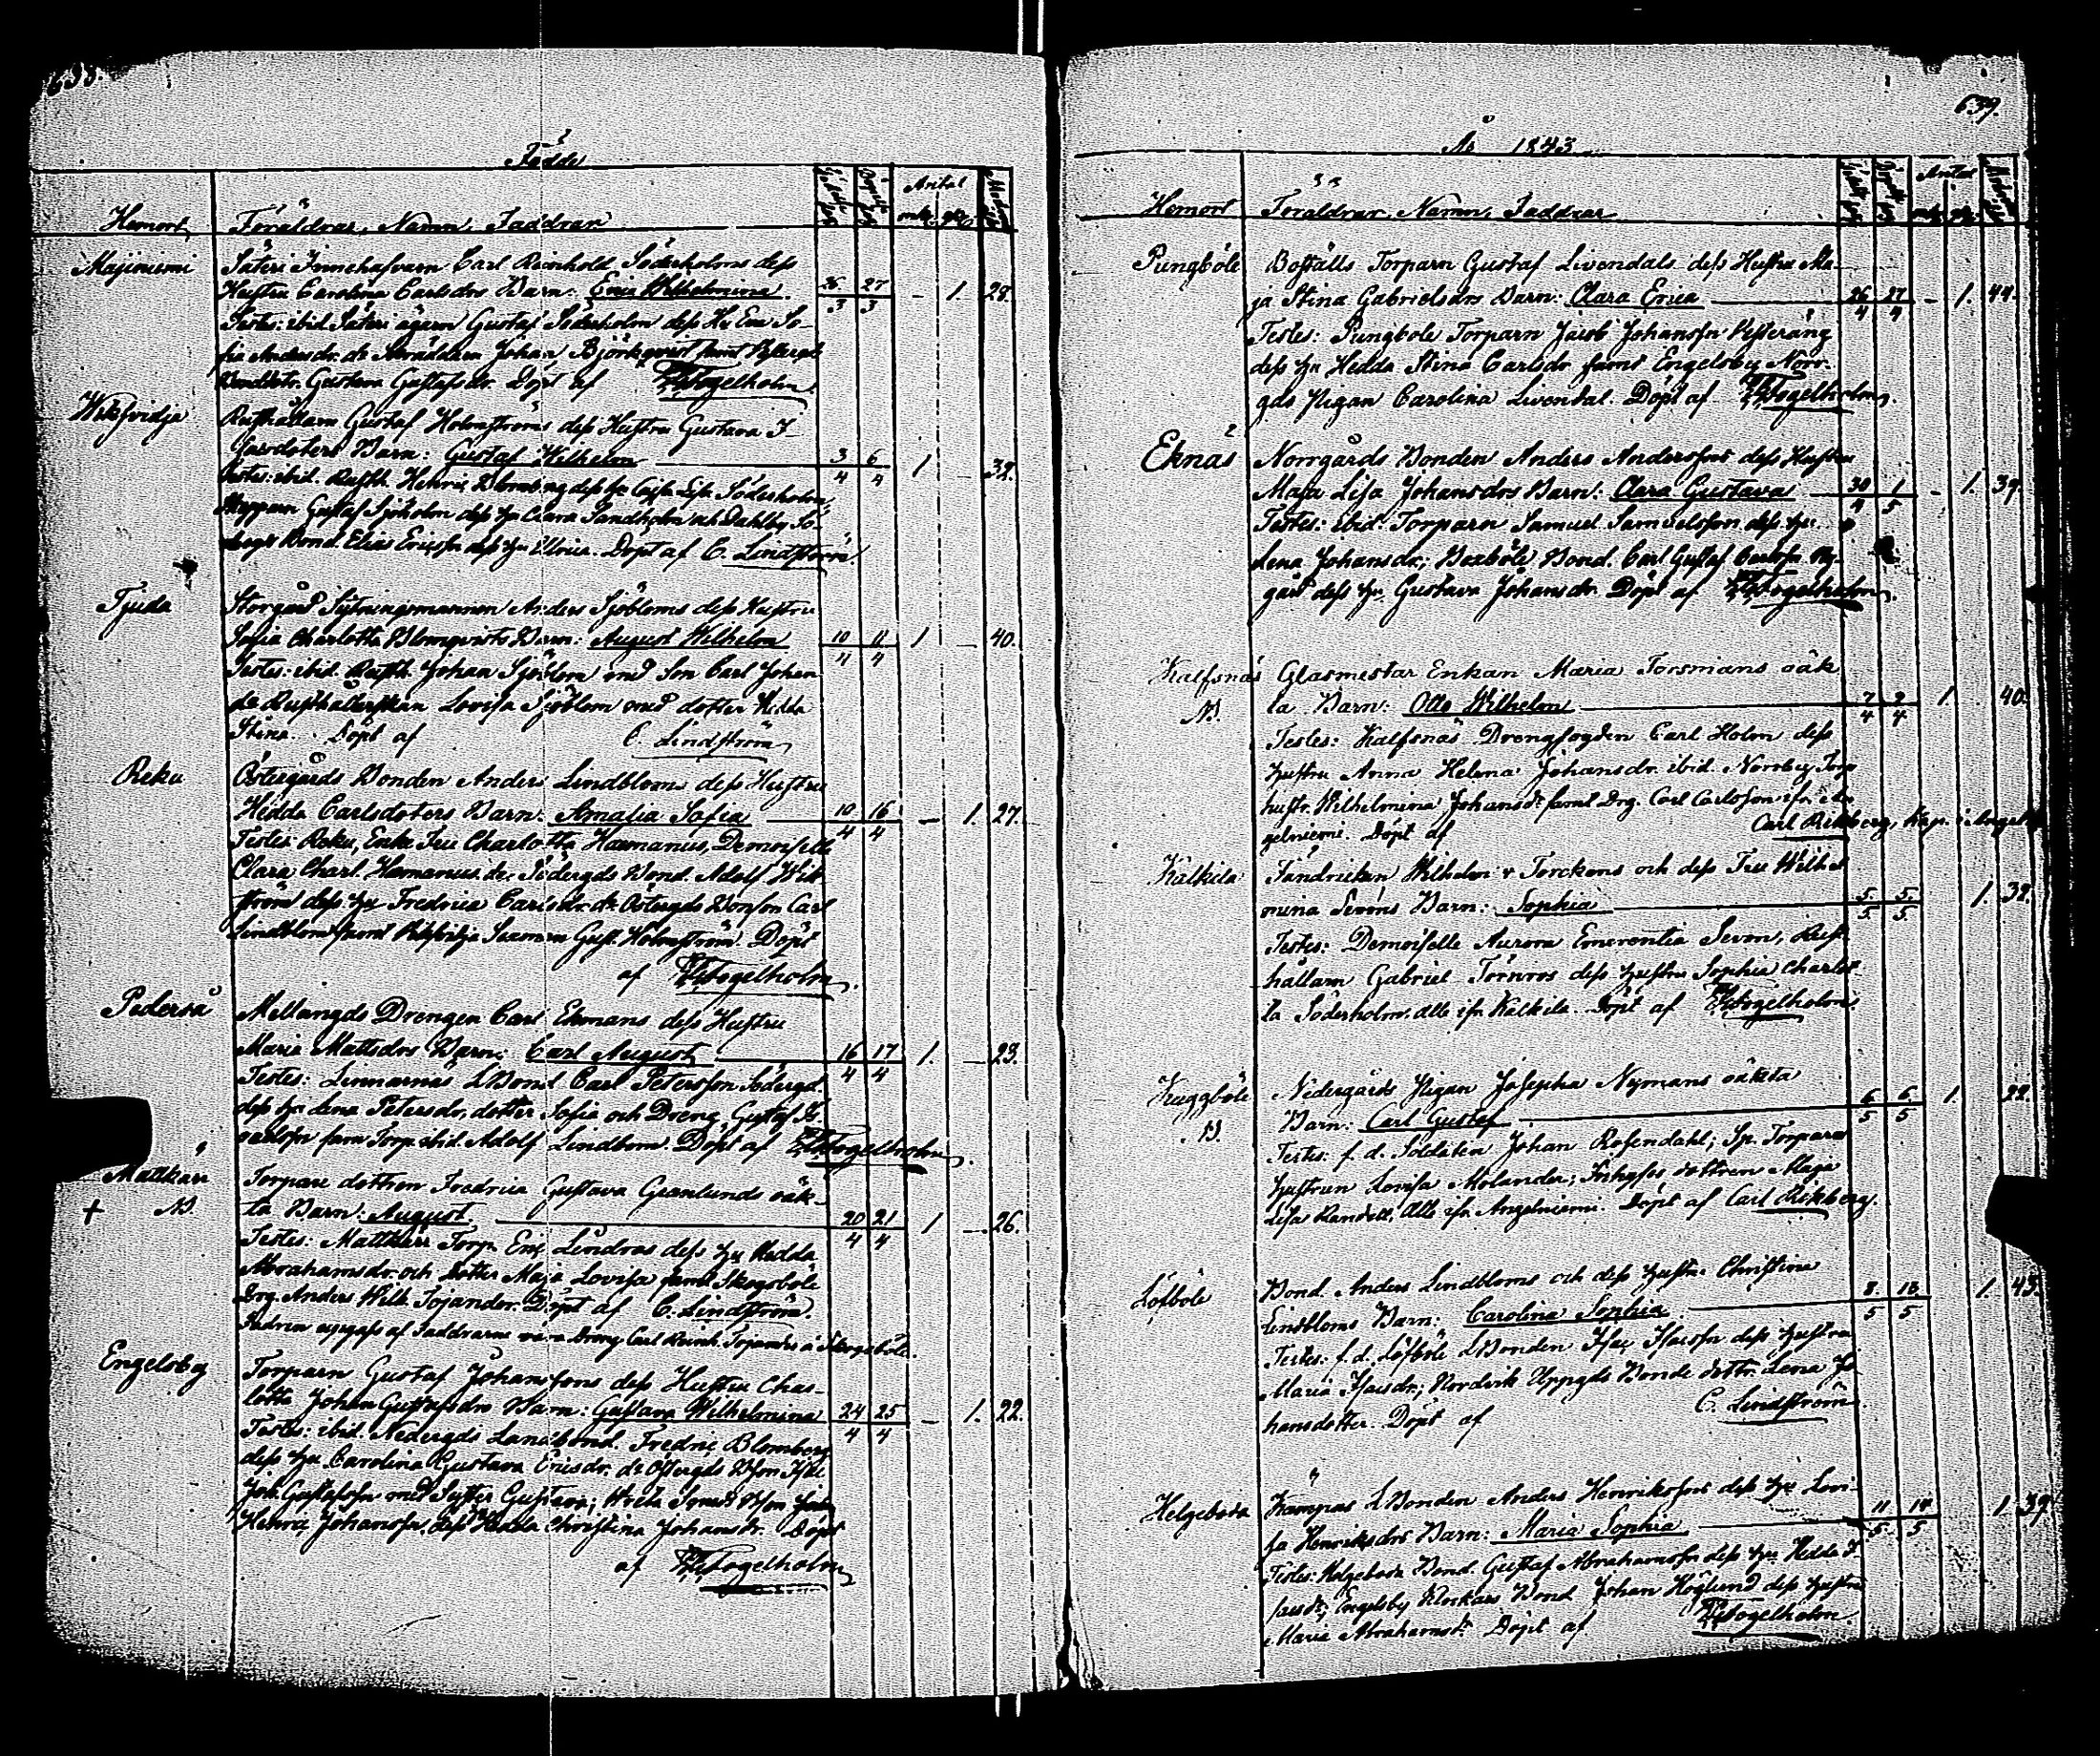 Födde
Hemort Föräldrar, Namn, Faddrar
Födelse dag Döpelse dag Antal mk. qk. Modrens ålder
Majiniemi Säteri Innehafvarn Carl Reinhold Söderholms dess
Hustru Carolina Carlsdrs Barn: Erica Wilhelmina 26/3 27/3 - 1. 28.
Testes: ibid. Säteri ägarn Gustaf Söderholm dess Hu Eva So-
fia Andersdr. Johan Björkqvist samt
Gustava Gustafsdr. Döpt af Fogelholm.
Wikfvidja Rusthållarn Gustaf Holmströms dess Hustru Gustava I-
saksdoters Barn: Gustaf Wilhelm 3/4 6/4 1 32.
Testes: ibid. Rusth. Henric Blomberg dess hu Cajsa Lisa Söderholm,
Skepparn Gustaf Sjöholm dess hu Clara Sandholm och Dahlby Sö-
dergs Bond. Elias Ericsson dess hu Ulrica. Döpt af C. Lindström.
Tjuda Storgård Sytningsmannen Anders Sjöbloms dess Hustru
Sofia Charlotta Blomqvists Barn: August Wilhelm 10/4 11/4 1 - 40.
Testes: ibid. Rusth. Johan Sjöblom med Son Carl Johan
do Rusthållerskan Lovisa Sjöblom med dotter Hedda
Stina. Döpt af C. Lindström
Reku Östergårds Bonden Anders Lindbloms dess Hustru
Hedda Carlsdoters Barn: Amalia Sofia 10/4 16/4 - 1. 27.
Testes: Reku, Enke Fru Charlotta Hæmanius, Demoiselle
Clara Charl. Hæmanius, do Södergds Bond. Adolf Wik-
ström dess hu Fredrica Carlsdr. do Östergds Bonson Carl
Lindblom samt Gust. Holmström. Döpt
af Fogelholm.
Pederså Mellangds Drengen Carl Ekmans dess Hustru
Maria Mattsdrs Barn: Carl August 16/4 17/4 1. - 23.
Testes: Linnarnäs LBond Carl Petersson Södergd
dess hu Lena Petersdr, dotter Sofia och Dreng Gustaf
samt Torp. ibid. Adolf Lindbom. Döpt af Fogelholm.
Mattkärr Torpare dottren Fredrica Gustava Granlunds oäk-
+ N. ta Barn: August 20/4 21/4 1 - 26.
Testes: Mattkärr Torp. Eric Lindroos dess hu Hedda
Abrahamsdr. och dotter Maja Lovisa samt Skogsböle
Drg. Anders Wilh. Tojander. Döpt af C. Lindström.
Fadren uppgafs af Faddrarne vara Dreng Carl Reinh. Tojander i Skogsböle.
Engelsby Torparn Gustaf Johanssons dess Hustru Char-
lotta Johan Gustafsdrs Barn: Gustava Wilhelmina 24/4 25/4 - 1. 22.
Testes: ibid. Nedergds Landbond. Fredric Blomberg
dess hu Carolina Gustava Ericsdr. do Östergds Bson
Joh. Gustafsson med Syster Gustava;
Henric Johansson, dess Hedda Christina Johansdr. Döpt
af Fogelholm
639.
År 1843
Hemort Föräldrar, Namn, Faddrar
Födelse dag Döpelse dag Antal mk. qk. Modrens ålder
Pungböle Boställs Torparn Gustaf Livendals dess Hustru Ma-
ja Stina Gabrielsdrs Barn: Clara Erica 26/4 27/4 - 1. 44.
Testes: Pungböle Torparn Jacob Johansson Westeräng
dess hu Hedda Stina Carlsdr samt Engelsby Norr-
gds Pigan Carolina Livendal. Döpt af Fogelholm.
Eknäs Norrgårds Bonden Anders Anderssons dess Hustru
Maja Lisa Johansdrs Barn: Clara Gustava 30/4 1/5 - 1. 39.
Testes: ibid. Torparn Samuel Samuelsson dess hu
Lena Johansdr.; Boxböle Bond. Carl Gustaf Carlsson Ny-
gård dess hu Gustava Johansdr. Döpt af Fogelholm.
Kalfsnäs Glasmestar Enkan Maria Forsmans oäk-
N. ta Barn: Otto Wilhelm 7/4 9/4 1. 40.
Testes: Kalfsnäs Drengfogden Carl Holm dess
hustru Anna Helena Johansdr. ibid. Norrby Torp
hustr. Wilhelmina Johansdr samt Drg. Carl Carlsson ifr An-
gelniemi. Döpt af Carl Rikberg, Kap. i Angeln
Kälkilä Fändricken Wilhelm v Torckens och dess Fru Wilhel-
mina Seröns Barn: Sophia 5/5 5/5 1. 32.
Testes: Demoiselle Aurora Emerentia Seron, Rust-
hållarn Gabriel Törnroos dess hustru Sophia Charlot-
ta Söderholm. alle ifr Kälkilä. Döpt af Fogelholm.
Kuggböle Nedergårds Pigan Josepha Nymans oäkta
N. Barn: Carl Gustaf 6/5 6/5 1. 22.
Testes: f. d. Soldaten Johan Rosendahl; Sp. Torpare
hustrun Lovisa Molander; Inhyses dottren Maja
Lisa Randell, Alle ifr Angelniemi. Döpt af Carl Rikberg.
Löfböle Bond. Anders Lindbloms och dess hustru Christina
Lindbloms Barn: Carolina Sophia 8/5 13/5 1. 43.
Testes: f. d. Löfböle LBonden Isac Isacsson dess hustru
Maria Isacsdr; Nordvik Uppgds Bonde dottr. Lena Jo-
hansdotter. Döpt af C. Lindström.
Helgeboda Kampas LBonden Anders Henrikssons dess hu Lovi-
sa Henriksdrs Barn: Maria Sophia 11/5 14/5 1. 39.
Testes: Helgeboda Bond. Gustaf Abrahamsson dess hu Hedda I-
sacsdr; Engelsby Klockars Bond Johan Höglund dess hustru
Maria Abrahamsdr. Döpt af Fogelholm.